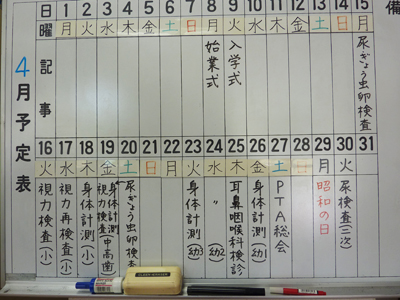 備
4月予定表
日 1 2 3 4 5 6 7 8 9 10 11 12 13 14 15
曜 月 火 水 木 金 土 日 月 火 水 木 金 土 日 月
記事
始業式
入学式
尿ぎょう虫卵検査
16 17 18 19 20 21 22 23 24 25 26 27 28 29 30 31
火 水 木 金 土 日 月 火 水 木 金 土 日 月 火
視力検査(小)
視力再検査(小)
身体計測(小)
身体計測
視力検査(中高歯)
尿ぎょう虫卵検査
身体計測(幼3)
〃(幼2)
耳鼻咽喉科検診
身体計測(幼1)
PTA総会
昭和の日
尿検査(二次)